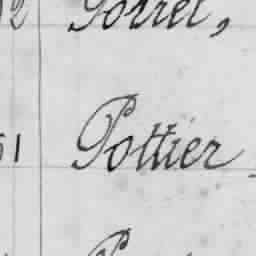 2 Porret,
51 Pottier